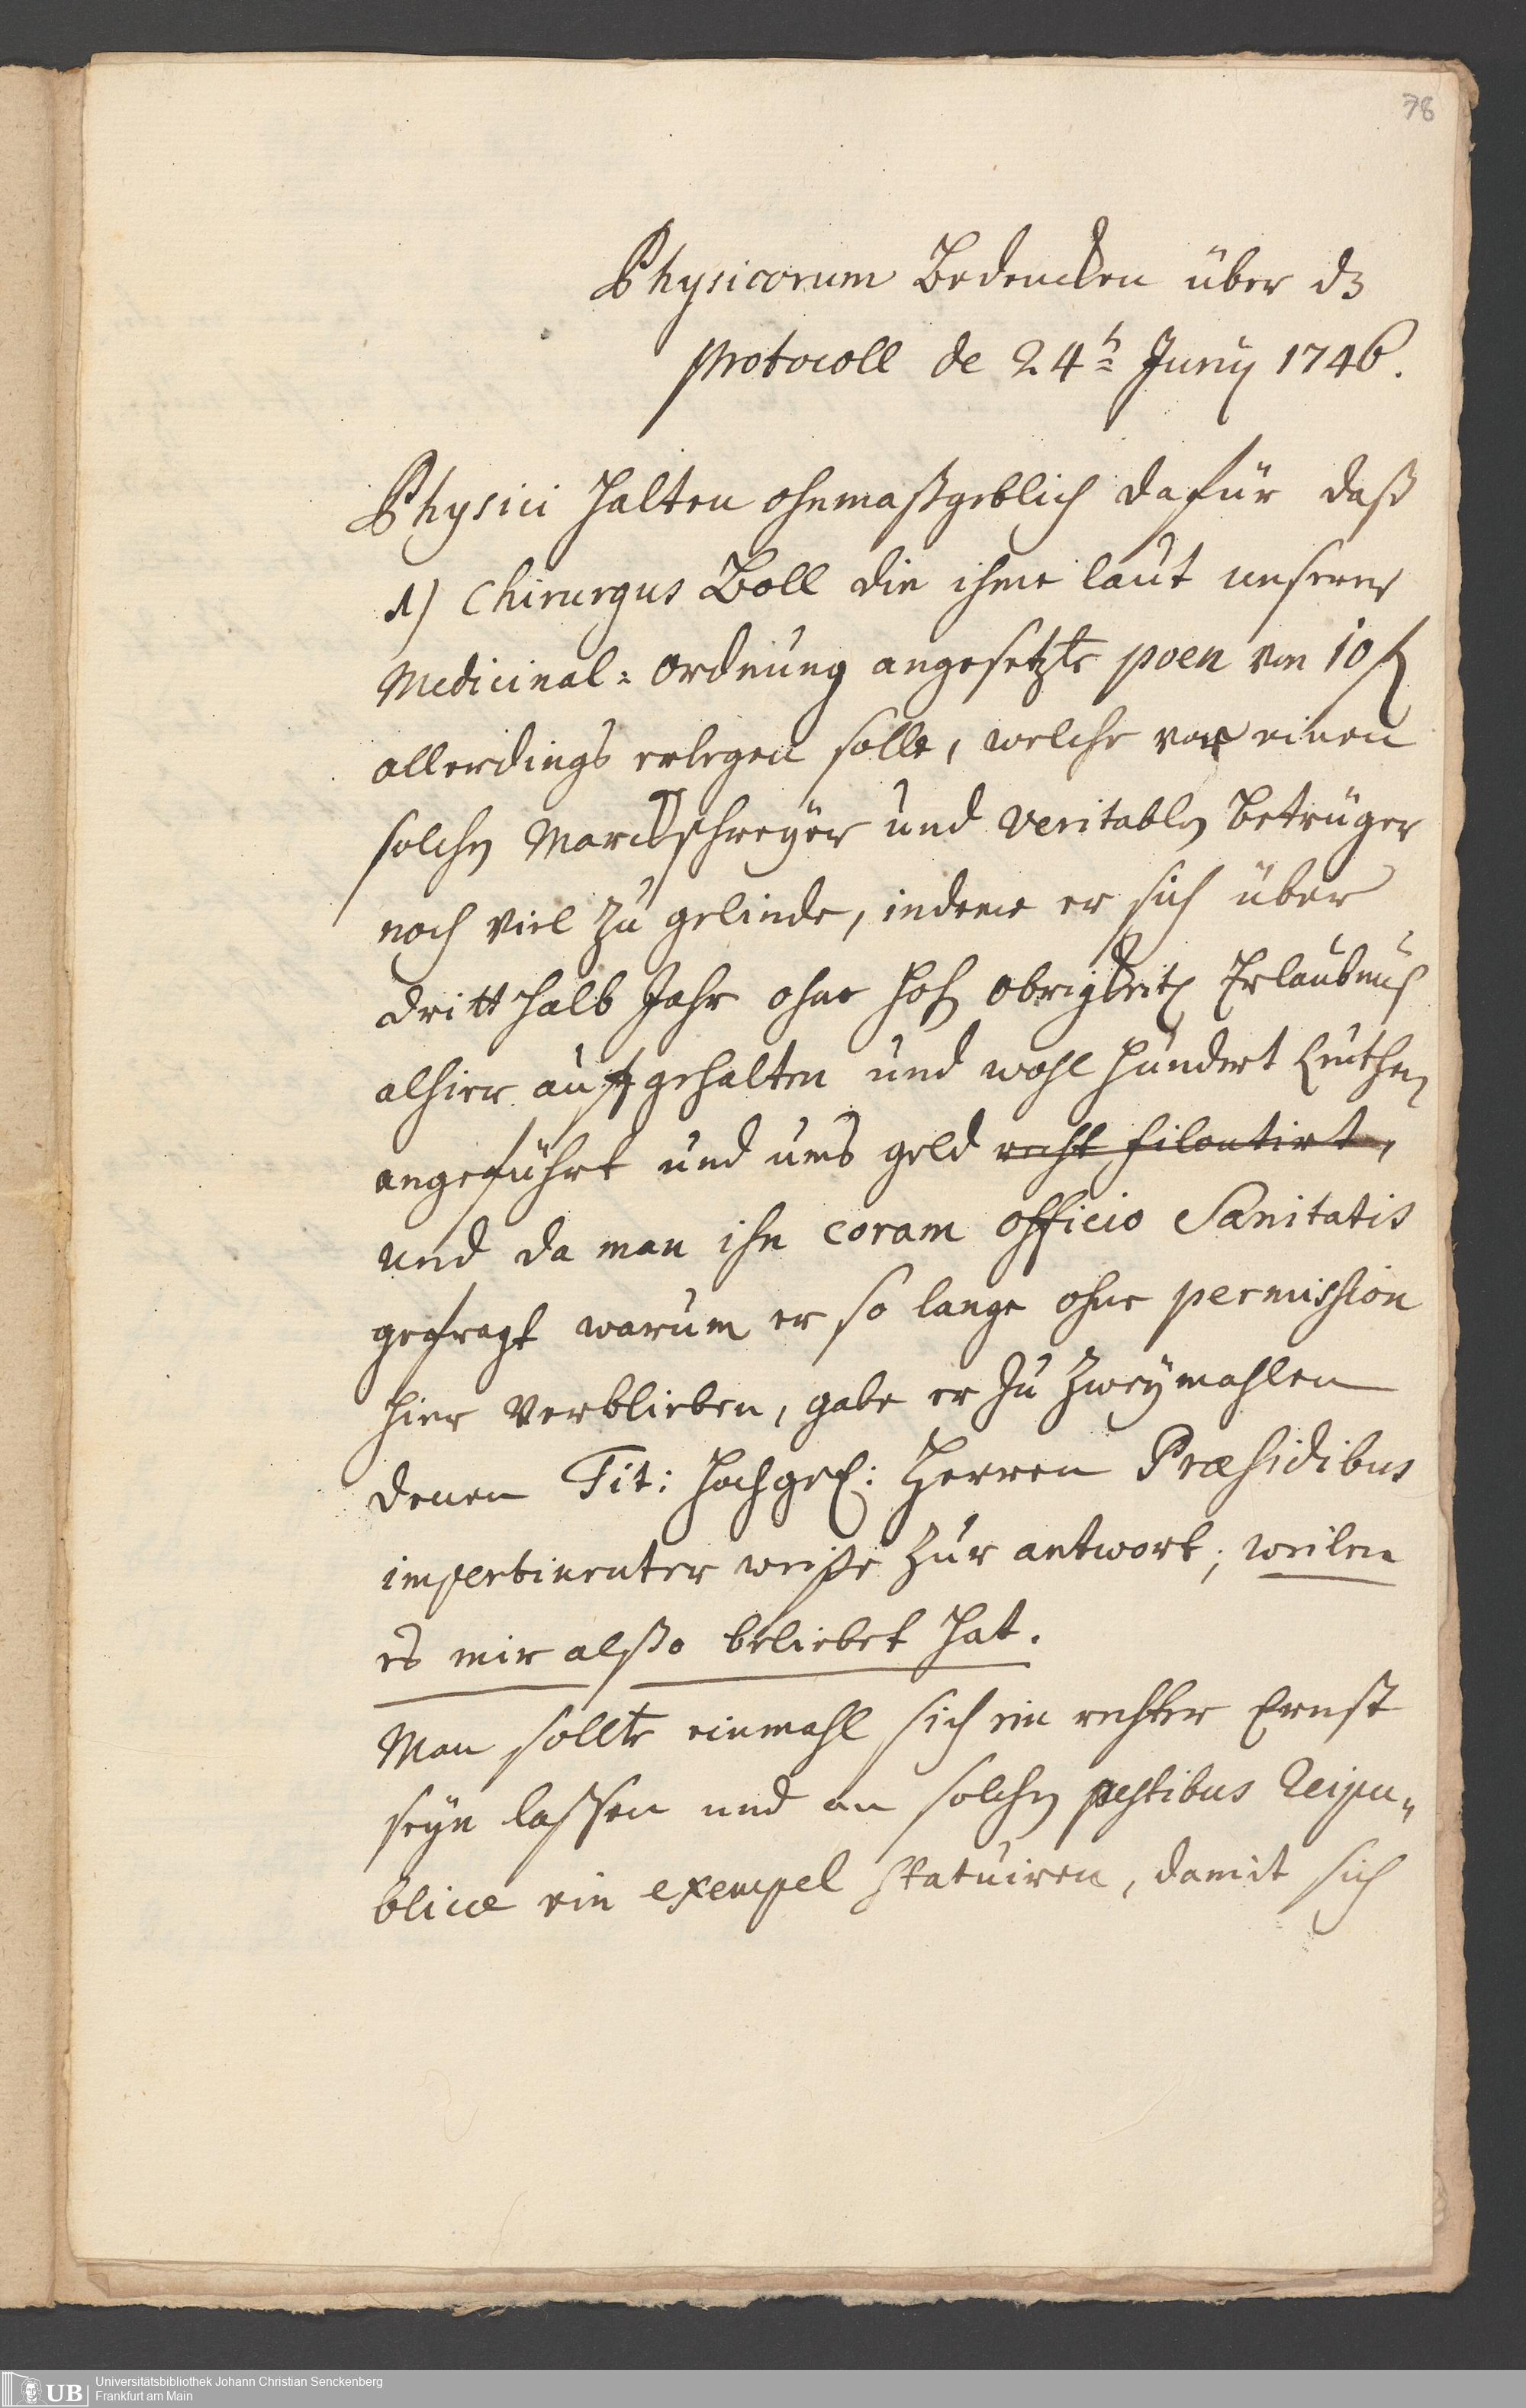 78
Physicorum Bedencken über dz
Protocoll de 24t. Junij 1746.
Physici halten ohnmaßgeblich dafür daß
1) Chirurgus Boll die ihme laut unserer
Medicinal-Ordnung angesetzte poen von 10 f
allerdings erlegen solle, welche vor einen
solchen Marcktschreyer und veritablen Betrüger
noch viel zu gelinde, indeme er sich über
dritthalb Jahr ohne hoh obrigkeitl Erlaubnus
alhier aufgehalten und wohl hundert Leuthen
angeführt und ums geld recht filoutirt,
und da man ihn coram officio Sanitatis
gefragt warum er so lange ohne permission
hier verblieben, gabe er zu zweymahlen
denen Tit: Hochgel: Herren Præsidibus
impertinenter weiße zur antwort; weilen
es mir alßo beliebet hat.
Man sollte einmahl sich ein rechter Ernst
seyn lassen und an solchen pestibus Reipu-
blicæ ein exempel statuiren, damit sich
UB Universitätsbibliothek Johann Christian Senckenberg
Frankfurt am Main